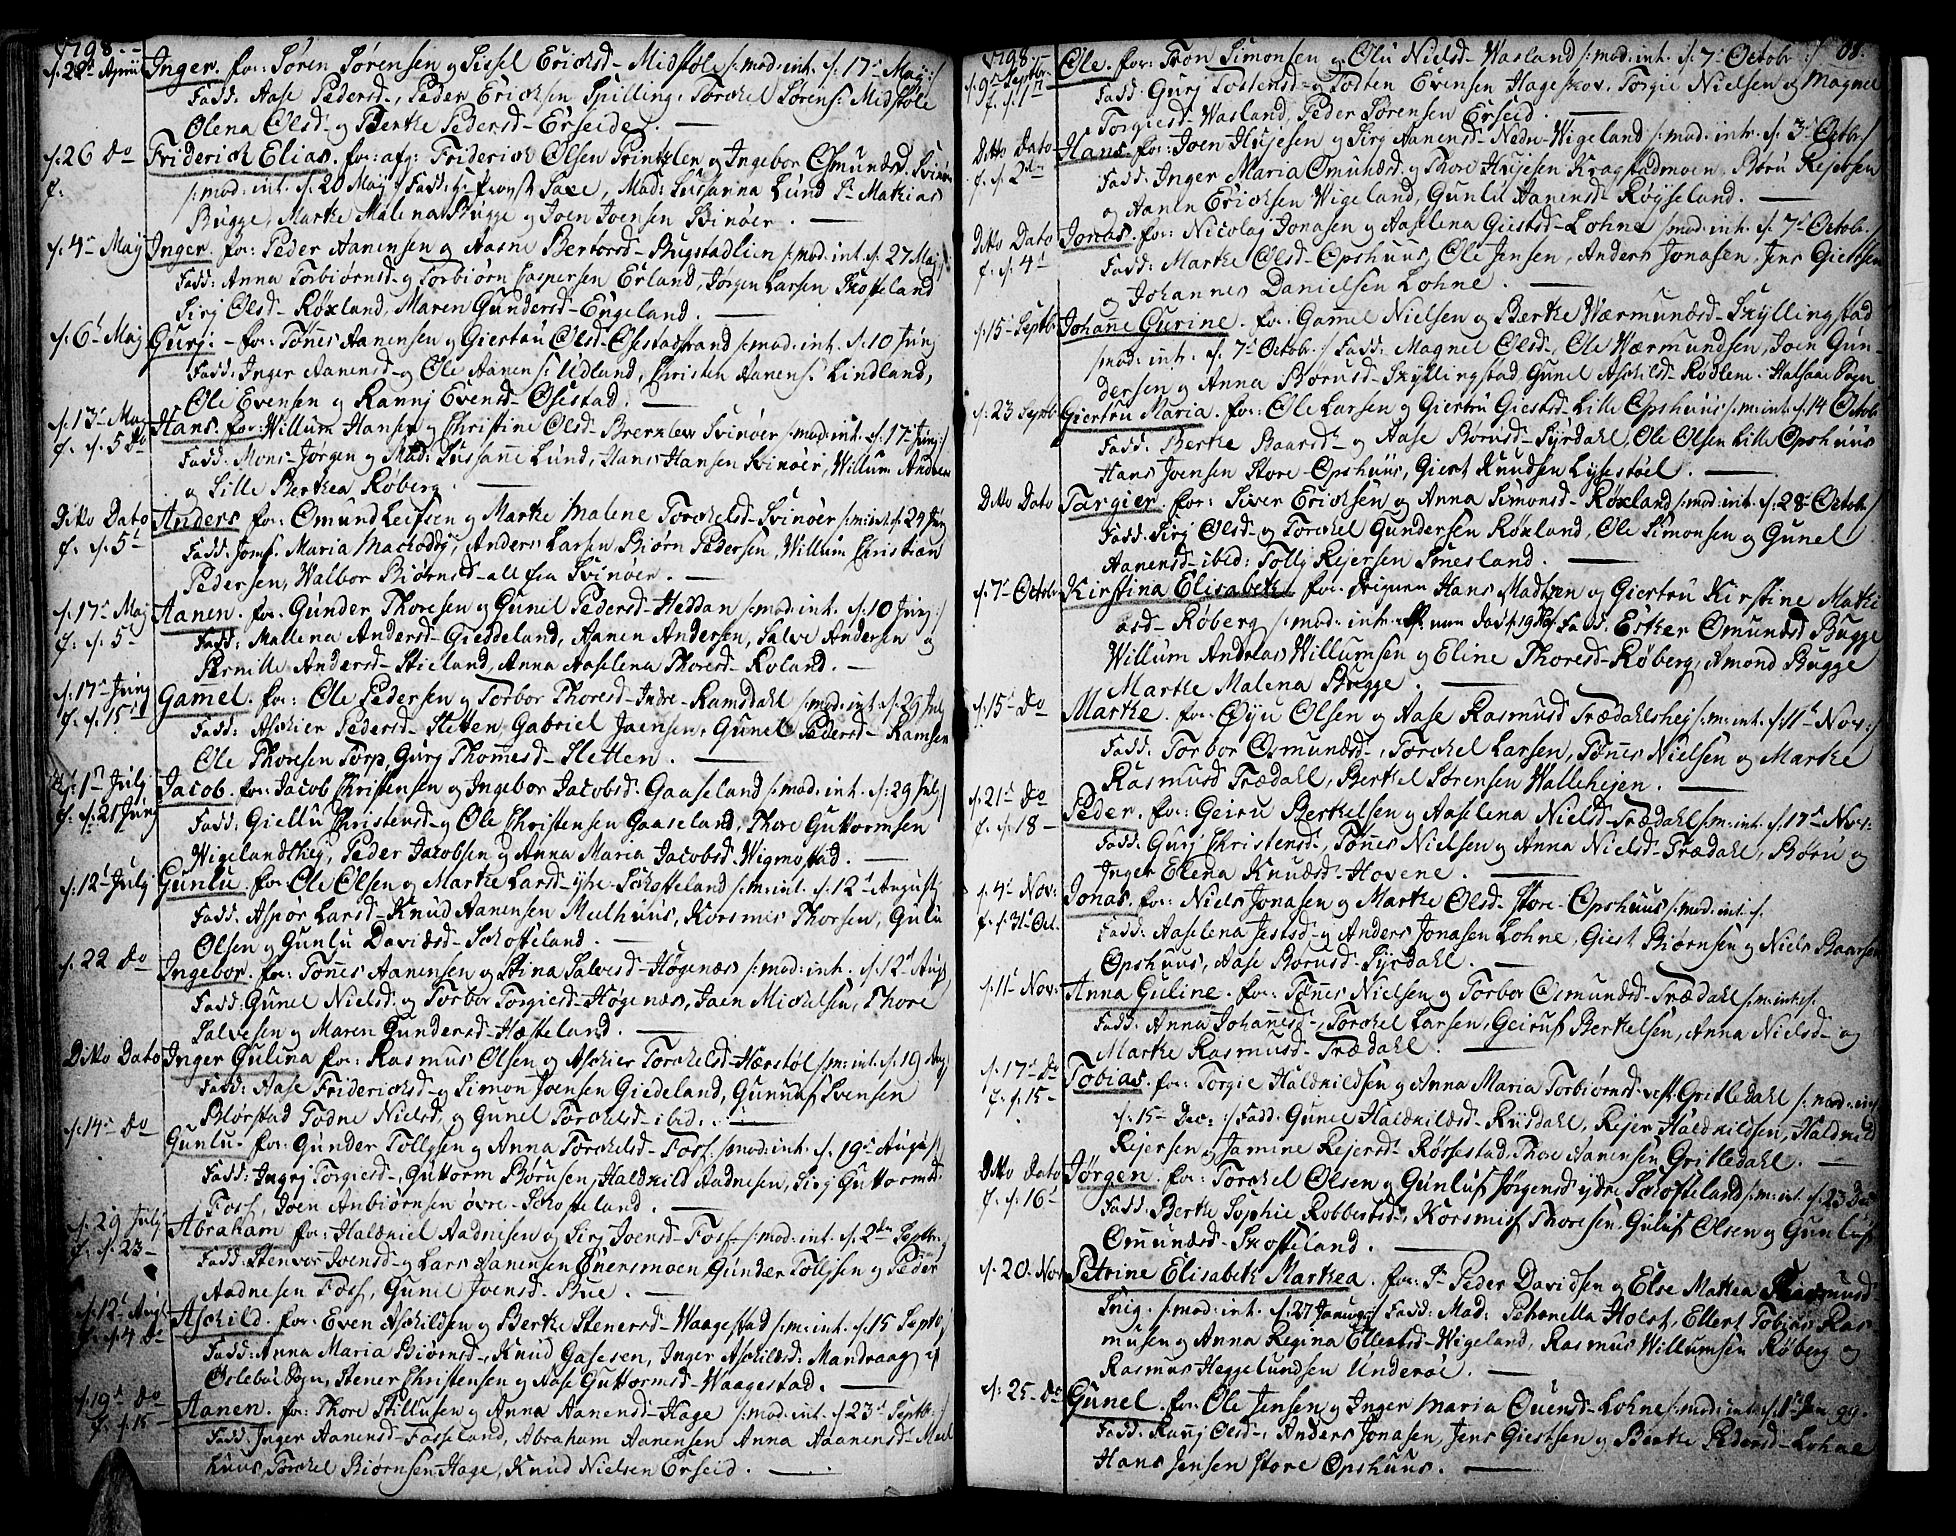 1798.
d. 22de April Inger. for: Søren Sørensen og Sissel Ericksd– Midtbøe /: mod: int. d. 17de Maij :/
Fadd: Aase Pedersd–, Peder Ericksen Spilling, Torckel Sørens: Midtbøe
Olena Olsd– og Berthe Pedersd– Erseide. —
d. 26 do Friderich Elias. for: afg: Friderich Olsen Printzlen og Ingebor Osmundsd. Svinøer
f. /: mod: int. d. 20 Maij :/ Fadd: Hr Provst Saxe, Mad: Susanna Lund Sr Mathias
Bugge, Marthe Malena Bugge og Joen Joensen Svinøer. —
d. 4de Maij Inger. for: Peder Aanensen og Aasne Bertorsd– Bugstadlien /: mod: int. d. 27 Maij
Fadd: Anna Torbiørnsd– og Torbiørn Caspersen Erland, Jørgen Larsen Skoffeland
Sirj Olsd– Røxland, Maren Gundersd– Engeland. —
d. 6te Maij Gurj: – for: Tønes Aanensen og Giertru Olsd– Osestadstrand /: mod: int. d. 10 Junij
Fadd: Inger Aanensd– og Ole Aanens: Udland, Christen Aanens: Lindland,
Ole Evensen og Rannj Evensd– Osestad. —
d. 13de Maij Hans. for: Willum Hansen og Christine Olsd– Brenlev Svinøer /: mod: int. d. 17de Junij :/
f. d. 5 do Fadd: Mons– Jørgen og Mad: Susanne Lund, Hans Hansen Svinøer, Willum Andreas
og Lille Berthea Røberg. —
Ditto Dato Anders for: Omund Leifsen og Marthe Malene Torckelsd– Svinøer /: m: int. d. 24 Junij
f. d. 5te Fadd: Jomf. Maria Maclodij, Anders Larsen, Biørn Pedersen, Willum Christian
Pedersen, Walbor Biørnsd– all fra Svinøer. —
d. 17de Maij Aanen. for: Gunder Thoresen og Gunil Pedersd– Heddan /: mod: int. d. 10 Junij :/
f. d. 5te Fadd: Mallena Andersd– Gieddeland, Aanen Andersen, Salve Andersen og
Pernille Andersd– Stieland, Anna Aaselena Thoresd– Roland. —
d. 17de Junij Gamel. for: Ole Pedersen og Torbor Thoresd– Indre– Ramsdahl /: mod: int. d. 29 Julij
f. d. 15de Fadd: Aschier Pedersd– Sletten, Gabriel Jaensen, Gunel Pedersd– Ramsen
Ole Thoresen Torp, Gurj Thomesd– Sletten. —
d. 1ste Julij Jacob. for: Jacob Christensen og Ingebor Jacobsd– Gaaseland /: mod: int. d. 29 Julij
f. d. 21 Junij Fadd: Giellu Christensd– og Ole Christensen Gaaseland, Thore Guttormsen
Wigelandsheij, Peder Jacobsen og Anna Maria Jacobsd– Wigmostad. —
d. 12te Julij Gunlu. for: Ole Olsen og Marthe Larsd– ytre– Skoffeland /: m: int. d. 12te Augustj
Fadd: Aspor Larsd– Knud Aanensen Mulhuus, Korsmis Thorsen, Gulu
Olsen og Gunlu Davidsd– Schoffeland. —
d. 22 do Ingebor. for: Tønes Aanensen og Stina Salvesd– Høgenæs /: mod: int. d. 12te Aug:
Fadd: Gunel Nielsd– og Torbor Torgiersd– Høgenæs, Jaen Mickelsen, Thore
Salvesen og Maren Gundersd– Hæsteland. —
Ditto Dato Inger Gulina for: Rasmus Olsen og Aschier Torckelsd– Hærstøl /: m: int. d. 19 Aug
Fadd: Aase Friderichsd– og Simon Joensen Giedeland, Gunnuf Svensen
Blorstad Todne Nielsd– og Gunel Torckelsd– ibid: . —
d. 14de do Gunlu– for: Gunder Tollgsen og Anna Torckelsd– Foss /: mod: int. d. 19de Aug:
Fadd: Ingrj Torgiersd–, Guttorm Børusen, Haldkild Aadnesen, Sirj Guttormsd
Foss, Joen Anbiørnsen øvre– Schoffeland. —
d. 29 Julij Abraham for: Haldkiel Aadnesen og Sirj Joensd– Foss /: mod: int. d. 2den Septbr:
f. d. 23– Fadd: Stenver Joensd– og Lars Aanensen Enersmoen, Gunder Tollgsen og Peder
Aadnesen Foss, Gunel Joensd– Bue. —
d. 12te Aug Aschild. for: Even Aschildsen og Berthe Stenersd– Waagestad /: m: int. d. 15 Septbr
f. d. 4 do Fadd: Anna Maria Biørnsd–, Knud Gasesen, Inger Aschildsd: Mandraag i
Oslebøe Sogn, Stener Christensen og Aase Guttormsd– Waagestad. —
d. 19de do Aanen. for: Thore Stillusen og Anna Aanensd– Hage /: mod: int. d. 23de Septbr:
f. d. 15 Fadd: Inger Aanensd– Fosseland, Abraham Aanensen Anna Aaanensd– Mul
huus, Torckel Biørnsen Hage, Knud Nielsen Erseid. —
1798. 68.
d. 9de Septbr Ole. for: Tron Simonsen og Olu Nielsd– Wasland /: mod: int. d. 7de Octobr :/
f. d. 1ste Fadd: Gurj Tostensd– og Tosten Evensen Hageskov, Torgie Nielsen og Magnel
Torgiesd– Wasland, Peder Sørensen Erseid. —
Ditto Dato Hans for: Joen Huiesen og Sirj Aanensd– Neder– Wigeland /: mod: int. d. 3de Octbr:/
f. d. 2den Fadd: Inger Maria Omundsd– og Thore Huiesen Kragstadmoen, Børu Rejersen
og Aanen Ericksen Wigeland, Gunlu Aanensd– Røyseland. —
Ditto Dato Jonas for: Nicolay Jonasen og Aaselena Giestsd– Lohne /: mod: int. d. 7de Octobr :/
f. d. 4de Fadd: Marthe Olsd– Opshuus, Ole Jensen, Anders Jonasen, Jens Giestsen
og Johannes Danielsen Lohne. —
d. 15de Septbr Johane Gurine. for: Gamel Nielsen og Berthe Wærmundsd– Skyllingstad
/: mod: int. d. 7de Octobr :/ Fadd: Magnel Olsd–, Ole Wærmundsen, Joen Gun–
dersen og Anna Børusd– Skyllingstad, Gunel Aschilds– Rødlem. Halsaae Sogn
d. 23 Septb: Giertru Maria. for: Ole Larsen og Giertru Giestsd– Lille Opshuus /: m: int. d. 14 Octob
Fadd: Berthe Baarsd– og Aase Børusd– Syrdahl, Ole Olsen Lille Opshuus
Hans Joensen Store– Opshuus, Giert Knudsen Lysestøel. —
Ditto Dato Targier. for: Siver Ericksen og Anna Simonsd– Røxland /: mod: int. d. 28de Octob:/
Fadd: Sirj Olsd– og Torckel Gundersen Røxland, Ole Simonsen og Gunel
Aanensd– ibid: Tollg Rejersen Tonesland. —
d. 7de Octobr Kirstina Elisabeth for: Hans Madtzen og Giertru Kirstine Mathi
asd– Røberg /: mod: intr: Fadd: Esther Omundsd Bugge
Willum Andreas Willumsen og Eline Thoresd– Røberg, Amond Bugge
Marthe Malena Bugge. —
d. 15de do Marthe. for: Øyu Olsen og Aase Rasmusd Trædahlshej /: m: int. d. 11te Nov:/
Fadd: Torbor Osmundsd–, Torckel Larsen, Tønes Nielsen og Marthe
Rasmusd Trædahl, Bertel Sørensen Wallehejen. —
d. 21de do Peder. for: Geiru Berthelsen og Aaselena Nielsd– Trædahl /: m: int. d. 17de Nov:
f. d. 18– Fadd: Gurj Christensd–, Tønes Nielsen og Anna Nielsd– Trædahl, Børu og
Inger Elena Knudsd– Hovene. —
d. 4de Nov: Jonas. for: Niels Jonasen og Marthe Olsd– Store– Opshuus /: mod: int. d.
f. d. 31te Oct. Fadd: Aaselena Jestsd– og Anders Jonasen Lohne, Giest Biørnsen og Niels Baarsen
Opshuus, Aase Børusd– Syrdahl. —
d. 11te Nov: Anna Guline. for: Tønes Nielsen og Torbor Osmundsd– Trædahl /: m: int: d.
Fadd: Anna Johanesd–, Torckel Larsen, Geiruf Berthelsen, Anna Nielsd– og
Marthe Rasmusd– Trædahl. —
d. 17de do Tobias. for: Torgie Haldkildsen og Anna Maria Torbiørnsd– Gritledahl /: mod: int
f. d. 15– d. 15– Dec: :/ Fadd: Gunel Haldkildsd– Rysdahl, Rejer Haldkildsen, Haldkild
Rejersen og Jamine Rejersd– Røssestad, Thore Aanensen Gritledahl. —
Ditto Dato Jørgen. for: Torckel Olsen og Gunluf Jørgensd ydre Schoffeland /: m: int. d. 23 Dec
f. d. 16de Fadd: Berthe Sophie Robbertsd–, Korsmis Thoresen, Guluf Olsen og Gunluf
Omundsd– Skoffeland. —
d. 20. Nov Petrine Elisabeth Marthea. for: Sr Peder Davidsen og Else Mathea Rasmusd
Snig. /: mod: int. d. 27 Januarj Fadd: Mad: Pehonella Holst, Ellert Tobias Ras–
musen og Anna Regina Ellertsd– Wigeland, Rasmus Willumsen Røberg og
Rasmus Heggelundsen Underøe. —
d. 25– do Gunel. for: Ole Jensen og Inger Maria Ouensd– Lohne /: mod: int. d. 1ste Jan 99.
Fadd: Ranj Olsd–, Anders Jonasen, Jens Giestsen og Berthe Pedersd– Lohne
Hans Jensen Store Opshuus. —